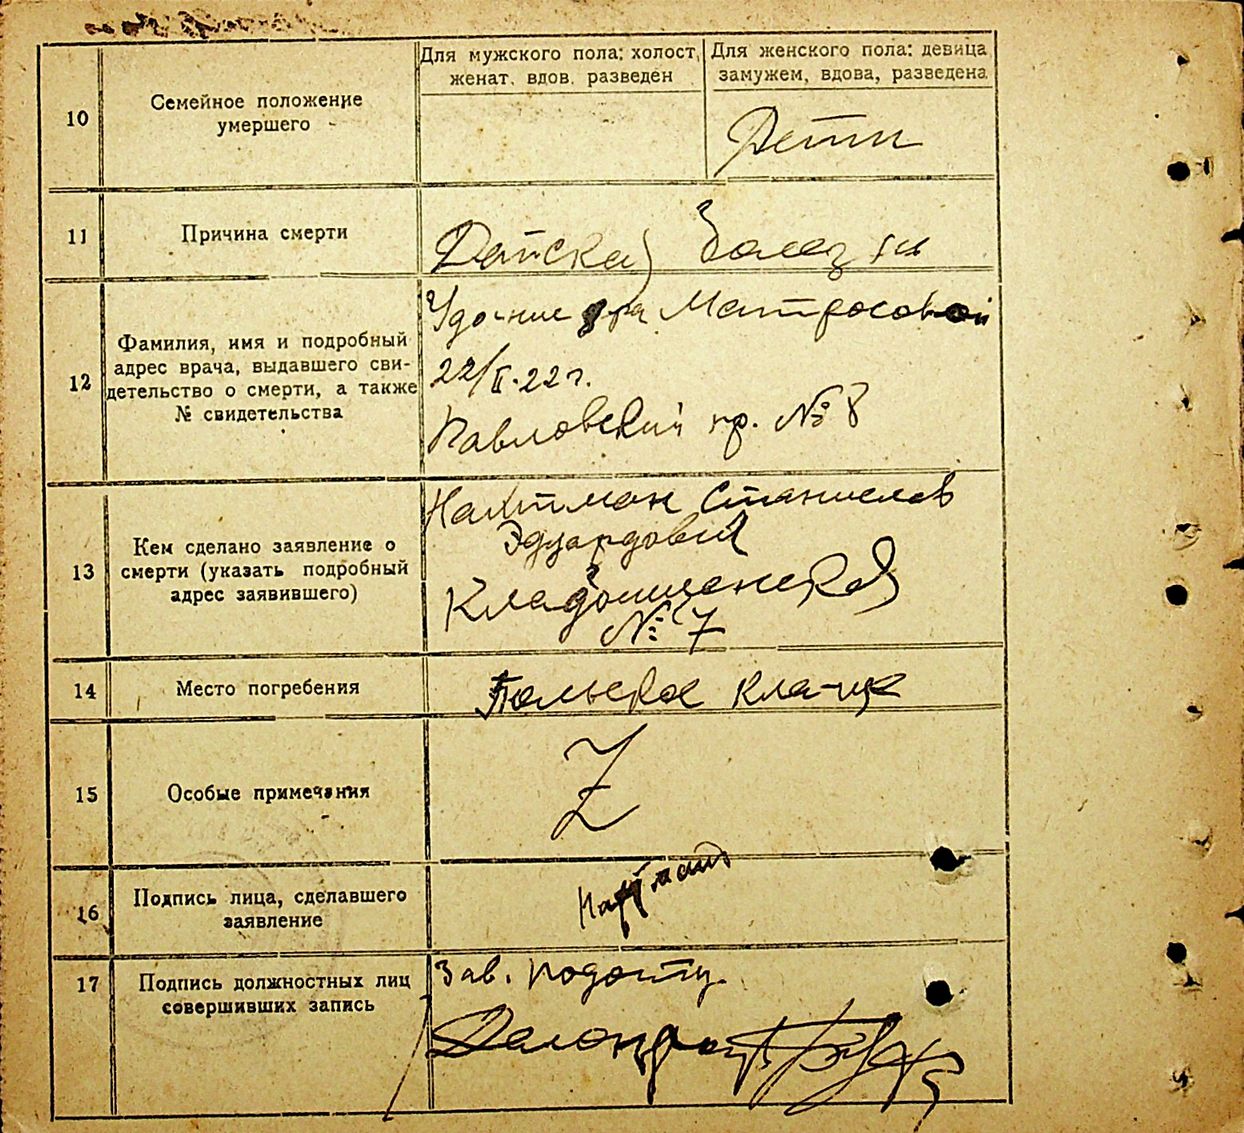 Для мужского пола: холост, женат, вдов, разведен
Для женского пола: девица замужем, вдова, разведена
10
Семейное положение
умершего
Дети
11
Причина смерти
Детская
12
Фамилия, имя и подробный
адрес врача, выдавшего сви-
детельство о смерти, а также
№ свидетельства
Матросовой
22/II.22 г.
Павловский пр. № 8
13
Кем сделано заявление о
смерти (указать подробный
адрес заявившего)
Станислав
Эдуардович
№ 7
14
Место погребения
Польское
15
Особые примечания
Z
16
Подпись лица, сделавшего
заявление
17
Подпись должностных лиц
совершивших запись
Зав. подотд.